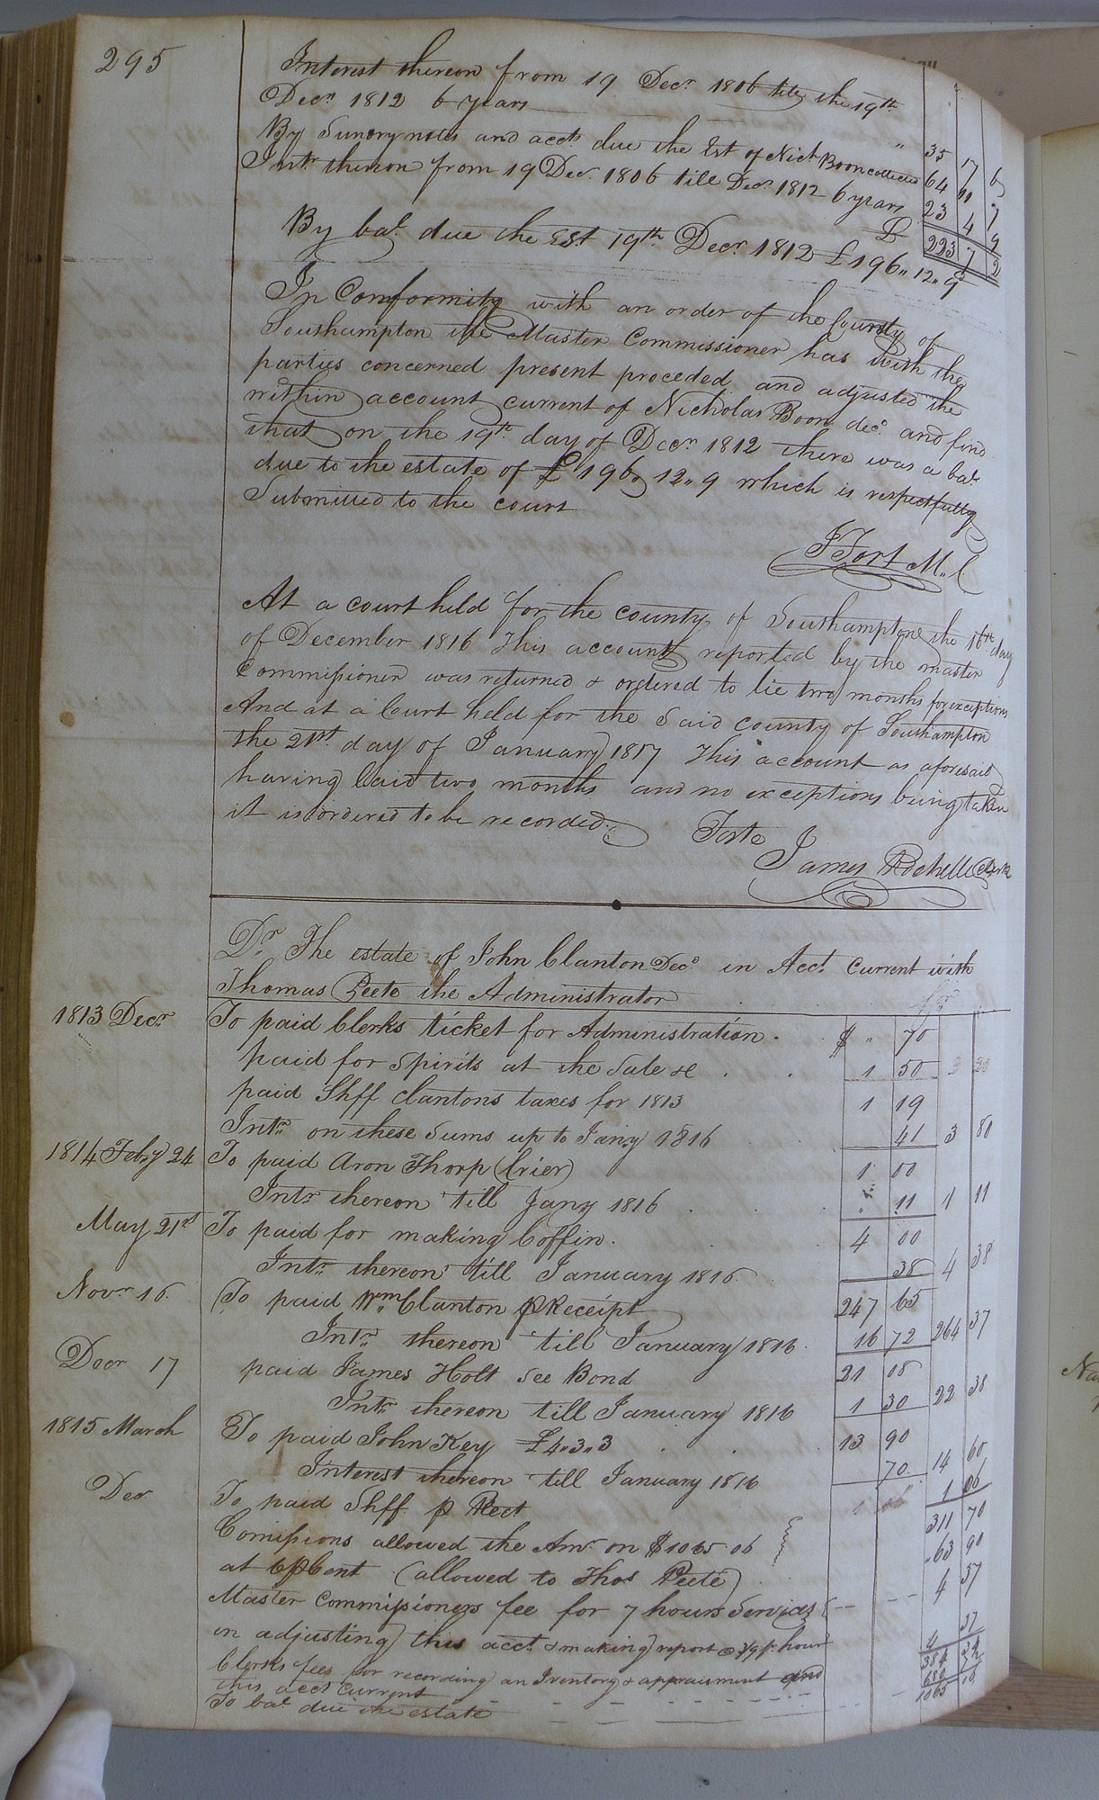 295
Interest thereon from 19 Decr 1806 till the 19th
Decr 1812 6 years " 35 17 6
By Sundry notes and accts due the Est of Nichs Boon collected 64 10 7
Intr thereon from 19 Decr 1806 till Decr 1812 6 years 23 4 9
£ 223 7 2
By bal due the Est 19th Decr 1812 £196,, 12,, 9
In Conformity with an order of the County of
Southampton the Master Commissioner has with the
parties concerned present proceded and adjusted the
within account current of Nicholas Boon decd and find
that on the 19th day of Decr 1812 there was a bal
due to the estate of £196,, 12,, 9 which is respectfully
Submitted to the court
J Fort M.. C
At a court held for the county of Southampton the 16th day
of December 1816 This account reported by the master
Commissioner was returned & ordered to lie two months for exceptions
And at a Court held for the Said county of Southampton
the 21st day of January 1817 This account as aforesaid
having laid two months and no exceptions being taken
it is ordered to be recorded.
Teste
James Rochelle Clerk
Dr The estate of John Clanton Decd in Acct Current with
Thomas Peete the Administrator Cr
1813 Decr To paid Clerks ticket for Administration . $ " 70
paid for Spirits at the Sale &c 1 50
paid Shff Clantons taxes for 1813 1 19
Intr on these Sums up to Jany 1816 41 3 80
1814 Feby 24 To paid Aron Thorp (Crier) 1 00
Intr thereon till Jany 1816 . 11 1 11
May 21st To paid for making Coffin. 4 00
Intr thereon till January 1816 38 4 38
Novr 16 To paid Wm Clanton p Receipt 247 65
Intr thereon till January 1816 16 72 264 37
Decr 17 paid James Holt See Bond 21 08
Intr thereon till January 1816 1 30 22 38
1815 March To paid John Key £4,, 3,, 3 13 90
Interest thereon till January 1816 70 14 60
Dec To paid Shff p Rect 1 06
311 70
Comissions allowed the Amr on $1065 06
at 6 p Cent (allowed to Thos Peete) 63 90
Master Commissioners fee for 7 hours Services
in adjusting this acct & making report @ 3/9 p hour 4 37
Clerks fees for recording an Inventory & appraisment and
this acct Current
To bal due the estate